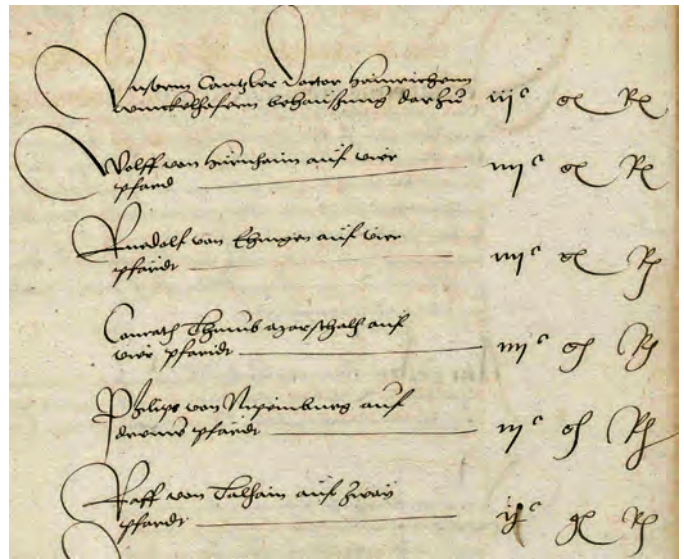 Unserm Cantzler Doctor Hainrichenn
Winckelhofern behausung darzu iijᶜ gl Rh
Wolff von Hürnhaim auf vier
pfard iiijᶜ gl Rh
Ruedolf von Ehingen auf vier
pfärdt iiijᶜ gl Rh
Conrath Thumb Marschalh auf
vier pfaridt iiijᶜ gl Rh
Philips von Nipemburg auf
pfärdt iijᶜ gl Rh
Raff von Talhaim auf zway
pfardt ijᶜ gl Rh